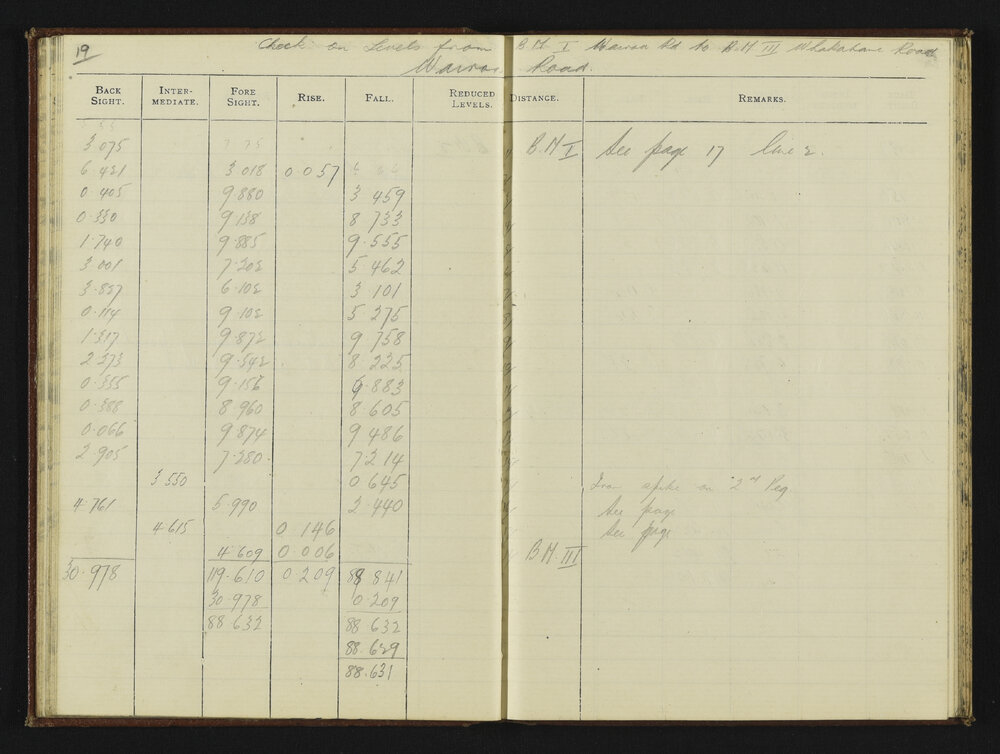 19 Check on Levels from B.M I Wairoa Rd to B.M III Whakahane Road
Wairoa Road.
BACK SIGHT. INTER-MEDIATE. FORE SIGHT. RISE. FALL. REDUCED LEVELS. DISTANCE. REMARKS.
3.075 B.M I See page 17 line 2.
6.421 3.018 0 057
0.405 9.880 3 459
0.330 9.138 8 733
1.740 9.885 9.555
3.001 7.202 5.462
3.827 6.102 3 101
0.114 9.102 5 275
1.317 9.872 9 758
2.273 9.542 8 225
0.355 9.156 6.883
0.388 8 960 8 605
0.066 9.874 9 486
2.905 7.280 7.214
3 550 0 645 Iron spike on 2nd Peg
4.761 5.990 2.440 See page
4.615 0 146 See page
4.609 0 006 B.M. III
30.978 119.610 0.209 88 841
30.978 0.209
88.632 88 632
88.629
88.631